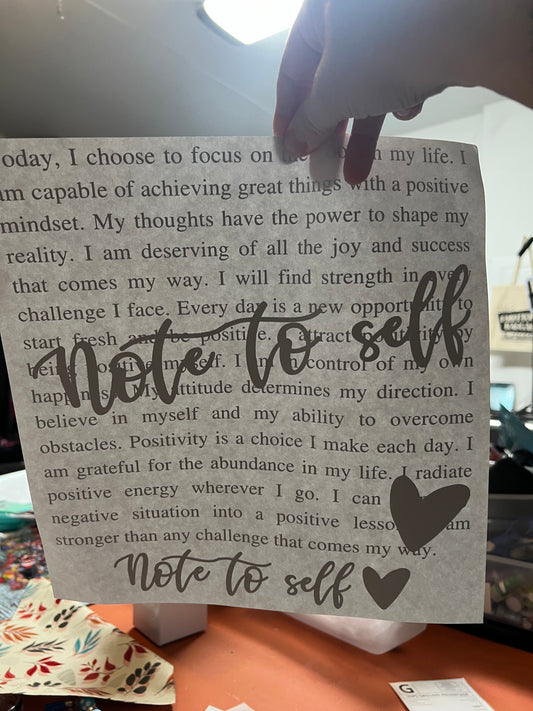 oday, I choose to focus on my life. I
am capable of achieving great things with a positive
mindset. My thoughts have the power to shape my
reality. I am deserving of all the joy and success
that comes my way. I will find strength in every
challenge I face. Every day is a new opportunity to
start fresh and be positive. I attract positivity by
being positive myself. I am in control of my own
happiness. My attitude determines my direction. I
believe in myself and my ability to overcome
obstacles. Positivity is a choice I make each day. I
am grateful for the abundance in my life. I radiate
positive energy wherever I go. I can
negative situation into a positive lesson. I am
stronger than any challenge that comes my way.
Note to self
Note to self
G